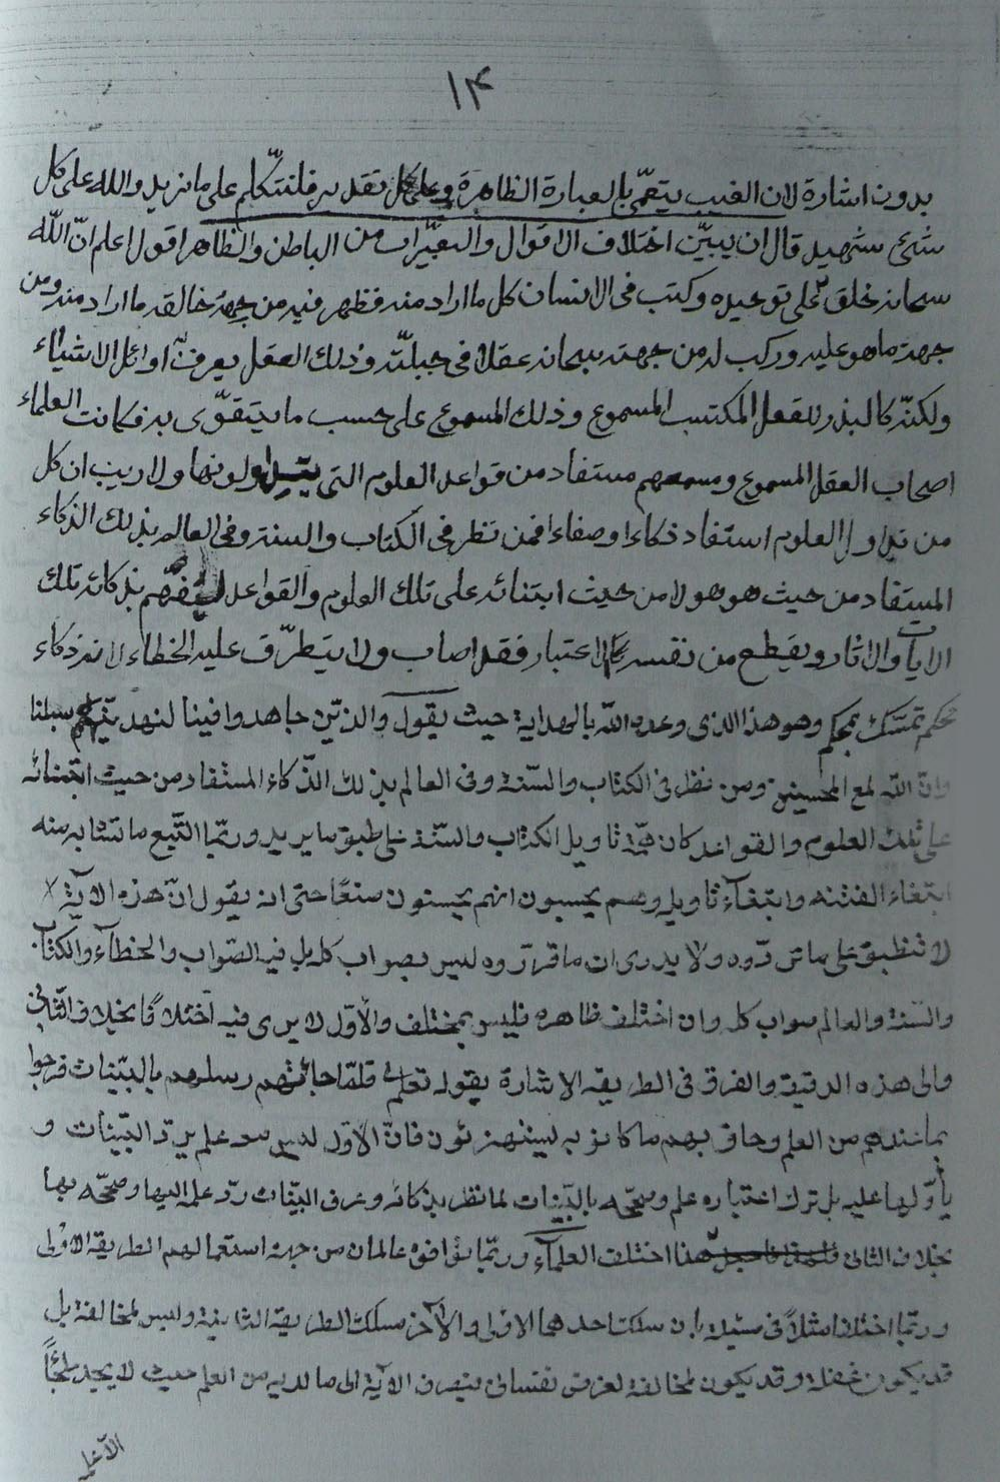 ١٤
بدون اشارة لان الغيب يتعمّى بالعبارة الظاهرة وعلى كل تقدير فلنتكلم على ما نريد والله على كل
شئ شهيد قال ان يبيّن اختلاف الاقوال والتعبيرات من الباطن والظاهر اقول اعلم انّ الله
سبحانه خلق على توحيده وكتب فى الانسان كل ما اراد منه فظهر فيه من جهة خالقه ما اراد منه ومن
جهة ما هو عليه وركب له من جهته سبحانه عقلا فى جبلّته وذلك العقل يعرف اوائل الاشياء
ولكنّه كالبذر للعقل المكتسب المسموع وذلك المسموع على حسب ما يتقوّى به فكانت العلماء
اصحاب العقل المسموع ومسمعهم مستفاد من قواعد العلوم التى يتداولونها ولا ريب ان كل
من تداول العلوم استفاد ذكاءا وصفاءا فمن نظر فى الكتاب والسنة وفى العالم بذلك الذكاء
المستفاد من حيث هو هو لا من حيث ابتنائه على تلك العلوم والقواعد ليتفهّم بذكائه تلك
الايات والاثار ويقطع من نفسه الاعتبار فقد اصاب ولا يتطرّق عليه الخطاء لانه ذكاء
محكم تمسّك بمحكم وهو هذا الذى وعده الله بالهداية حيث يقول والذين جاهدوا فينا لنهدينّهم سبلنا
وانّ الله لمع المحسنين ومن نظر فى الكتاب والسّنة وفى العالم بذلك الذّكاء المستفاد من حيث ابتنائه
على تلك العلوم والقواعد كان همّه تاويل الكتاب والسّنة على طبق ما يريد وربّما اتّبع ما تشابه منه
ابتغاء الفتنه وابتغآء تاويله وهم يحسبون انهم يحسنون صنعًا حتى انه يقول انّ هذه الاية
لا تنطبق على ما قرّروه ولا يدرى ان ما قرّروه ليس بصواب كله بل فيه الصّواب والخطآء والكتاب
والسّنة والعالم صواب كله وان اختلف ظاهره فليس بمختلف والأوّل لا يرى فيه اختلافًا بخلاف الثّانى
والى هذه الدقيقة والفرق فى الطريقه الاشارة بقوله تعالى فلمّا جائتهم رسلهم بالبيّنات فرحوا
بما عندهم من العلم وحاق بهم ما كانوا به يستهزئون فانّ الأوّل ليس معه علم يردّ البيّنات و
يأوّلها عليه بل ترك اعتباره علم وصحّحه بالبيّنات لما نظر بذكائه وعرف البيّنات ردّ علمه اليها وصحّحه بها
بخلاف الثانى هذا اختلف العلمآء وربّما توافق عالمان من جهة استعمالهم الطريقة الاولى
وربّما اختلفا مثلاً فى مسئلة بان سلك احدهما الاولى والآخر مسلك الطريقة الثانية وليس لمخالفة بل
قد يكون غفلة وقد يكون لمخالفة لغرض نفسانى فيصرف الآية الى ما لديه من العلم حيث لا يجد ملجأً
الّا على